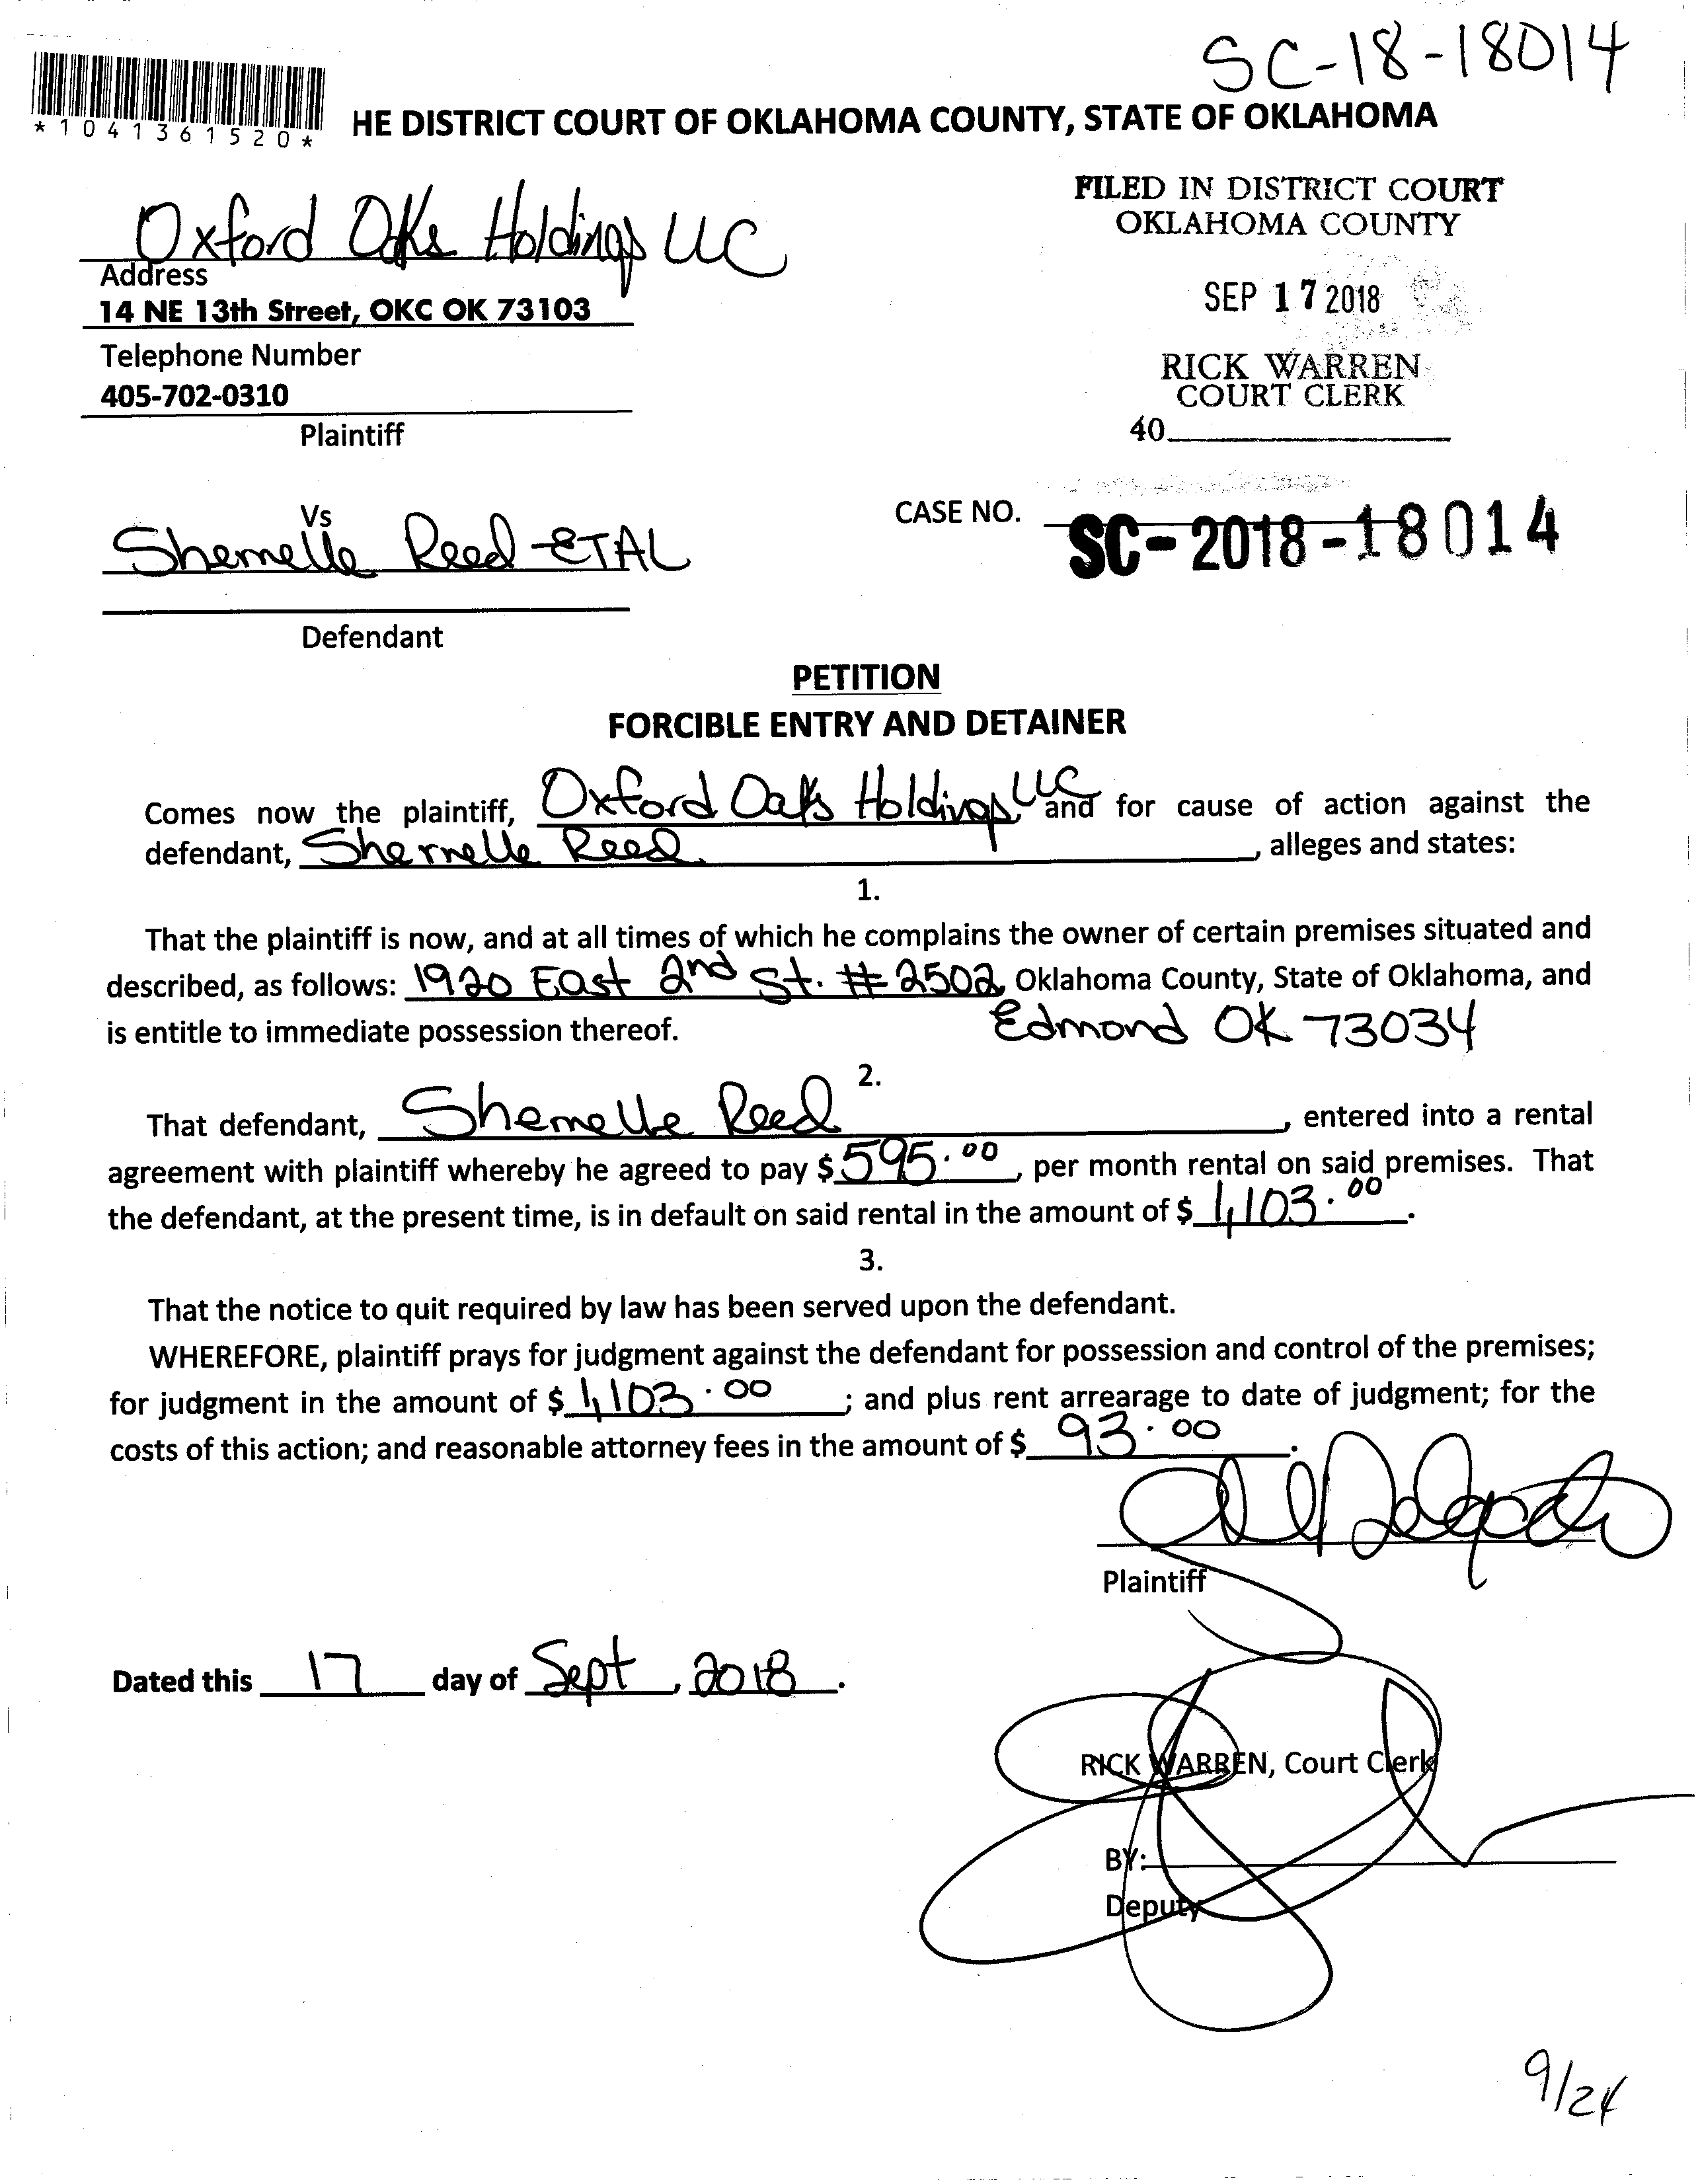 SC-18-18014
*1041361520*
HE DISTRICT COURT OF OKLAHOMA COUNTY, STATE OF OKLAHOMA
FILED IN DISTRICT COURT
OKLAHOMA COUNTY
SEP 17 2018
RICK WARREN
COURT CLERK
40
Oxford Oaks Holdings LLC
Address
14 NE 13th Street, OKC OK 73103
Telephone Number
405-702-0310
Plaintiff
Vs
CASE NO. SC-2018-18014
Shernelle Reed ETAL
Defendant
PETITION
FORCIBLE ENTRY AND DETAINER
Comes now the plaintiff, Oxford Oaks Holdings, LLC and for cause of action against the
defendant, Shernelle Reed, alleges and states:
1.
That the plaintiff is now, and at all times of which he complains the owner of certain premises situated and
described, as follows: 1920 East 2nd St. #2502, Oklahoma County, State of Oklahoma, and
is entitle to immediate possession thereof. Edmond OK 73034
2.
That defendant, Shernelle Reed, entered into a rental
agreement with plaintiff whereby he agreed to pay $ 595.00, per month rental on said premises. That
the defendant, at the present time, is in default on said rental in the amount of $ 1,103.00.
3.
That the notice to quit required by law has been served upon the defendant.
WHEREFORE, plaintiff prays for judgment against the defendant for possession and control of the premises;
for judgment in the amount of $ 1,103.00; and plus rent arrearage to date of judgment; for the
costs of this action; and reasonable attorney fees in the amount of $ 93.00.
Plaintiff
Dated this 17 day of Sept, 2018.
RICK WARREN, Court Clerk
BY:
Deputy
9/24